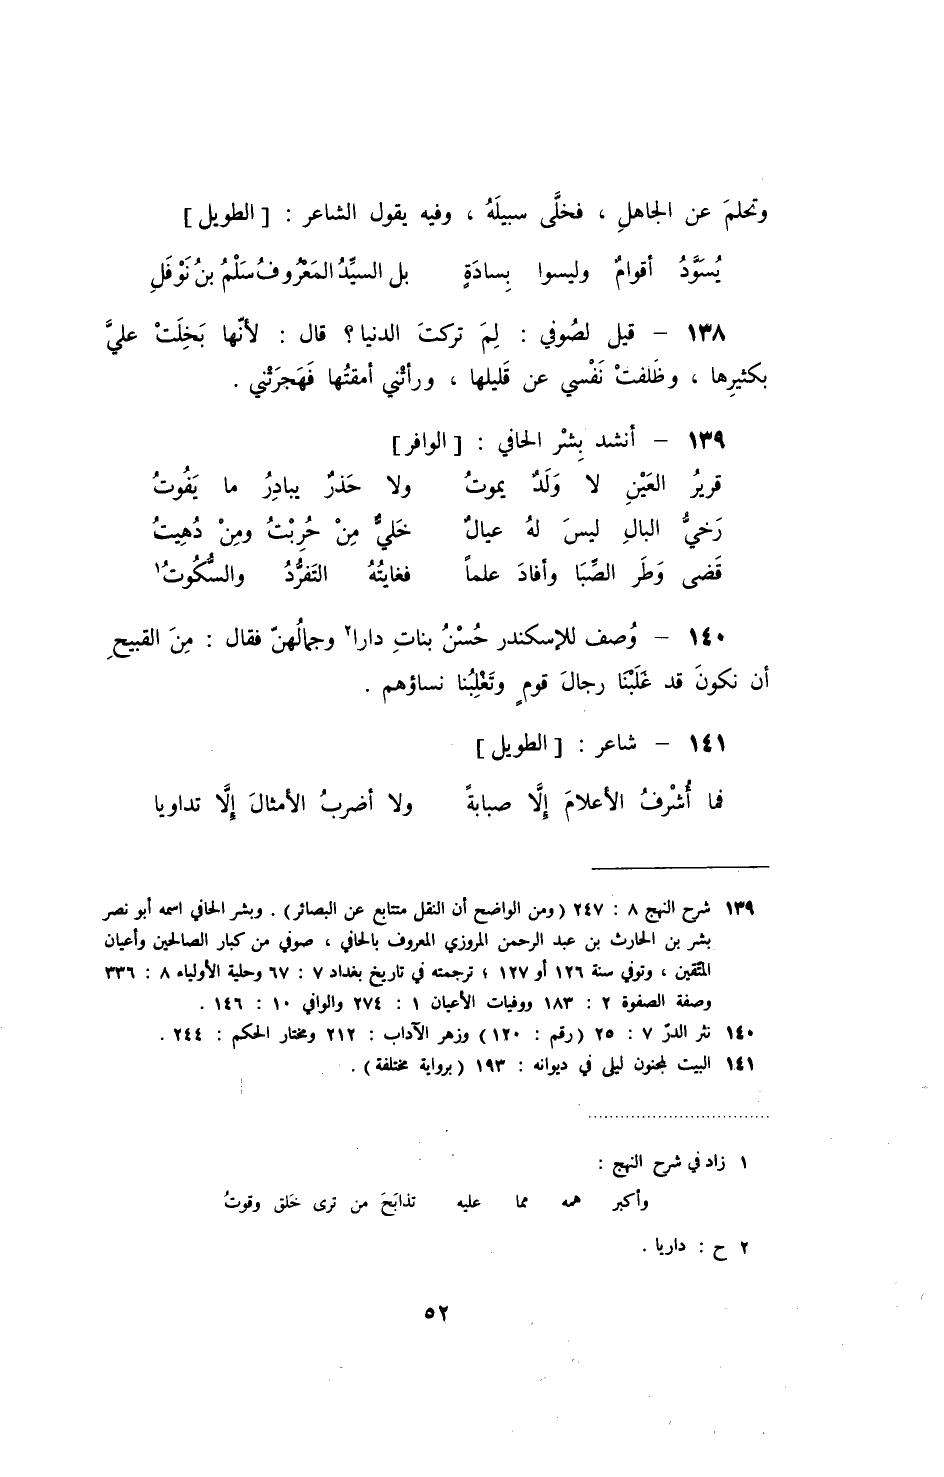 وتحلمَ عن الجاهلِ ، فخلَّى سبيلَهُ ، وفيه يقول الشاعر : [ الطويل ]
يُسَوَّدُ أقوامٌ وليسوا بِسادَةٍ بل السيِّدُ المَعْرُوفُ سَلْمُ بنُ نَوْفَلِ
١٣٨ – قيل لصُوفي : لِمَ تركتَ الدنيا ؟ قال : لأنّها بَخِلَتْ عليَّ
بكثيرِها ، وظَلفتْ نَفْسي عن قَليلها ، ورأتْني أمقتُها فَهَجرَتْني .
١٣٩ – أنشد بِشْر الحافي : [ الوافر ]
قريرُ العَيْنِ لا وَلَدٌ يموتُ ولا حَذرٌ يبادِرُ ما يَفُوتُ
رَخيُّ البالِ ليسَ لهُ عيالٌ خَليٌّ مِنْ حُرِبْتُ ومِنْ دُهِيتُ
قَضى وَطَر الصِّبَا وأفادَ علماً فغايتُهُ التَفرُّدُ والسُّكُوتُ١
١٤٠ – وُصف للإسكندر حُسْنُ بناتِ دارا٢ وجمالُهنّ فقال : مِنَ القبيحِ
أن نكونَ قد غَلَبْنَا رجالَ قومٍ وتَغْلِبُنا نساؤهم .
١٤١ – شاعر : [ الطويل ]
فما أُشْرِفُ الأعلامَ إِلَّا صبابةً ولا أضربُ الأمثالَ إِلَّا تداويا
١٣٩ شرح النهج ٨ : ٢٤٧ (ومن الواضح أن النقل متتابع عن البصائر) . وبشر الحافي اسمه أبو نصر
بشر بن الحارث بن عبد الرحمن المروزي المعروف بالحافي ، صوفي من كبار الصالحين وأعيان
المتّقين ، وتوفي سنة ١٢٦ أو ١٢٧ ؛ ترجمته في تاريخ بغداد ٧ : ٦٧ وحلية الأولياء ٨ : ٣٣٦
وصفة الصفوة ٢ : ١٨٣ ووفيات الأعيان ١ : ٢٧٤ والوافي ١٠ : ١٤٦ .
١٤٠ نثر الدرّ ٧ : ٢٥ (رقم : ١٢٠) وزهر الآداب : ٢١٢ ومختار الحكم : ٢٤٤ .
١٤١ البيت لمجنون ليلى في ديوانه : ١٩٣ (برواية مختلفة) .
١ زاد في شرح النهج :
وأكبر همه مما عليه تذابَحَ من ترى خَلق وقوتُ
٢ ح : داريا .
٥٢